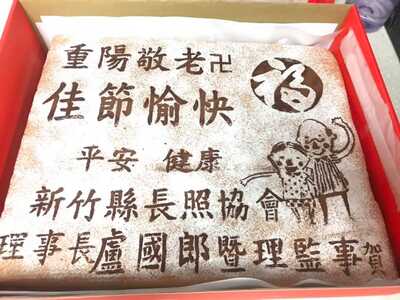 重陽敬老卍
福
佳節愉快
平安 健康
新竹縣長照協會
理事長盧國郎暨理監事賀